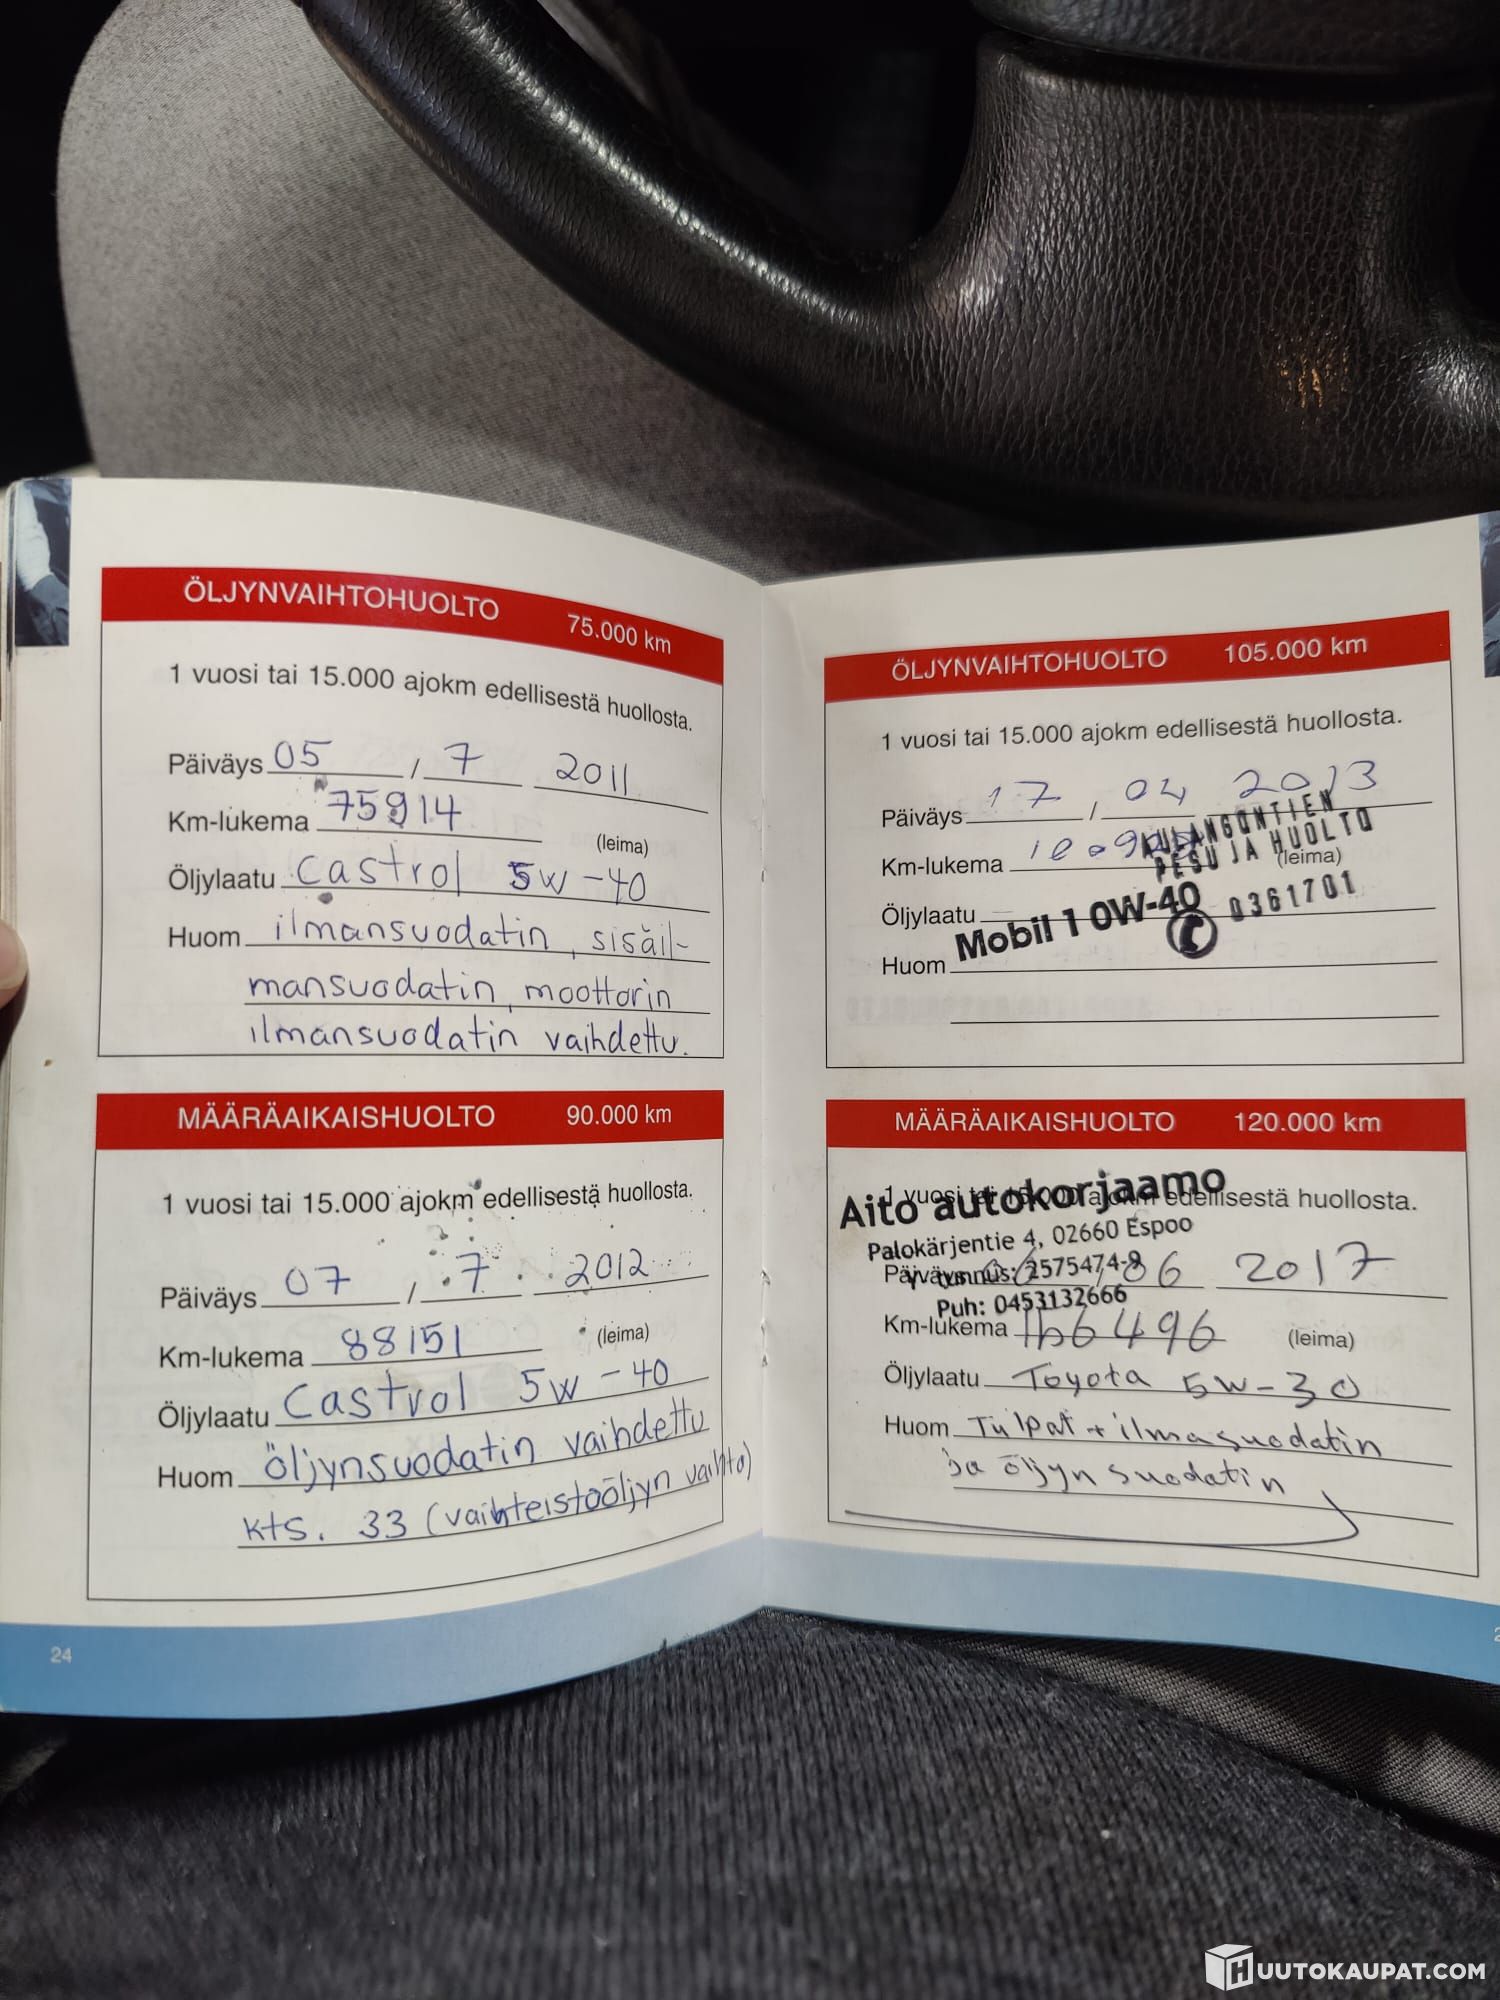 ÖLJYNVAIHTOHUOLTO 75.000 km
1 vuosi tai 15.000 ajokm edellisestä huollosta.
Päiväys 05 / 7 2011
Km-lukema 75914 (leima)
Öljylaatu Castrol 5w-40
Huom ilmansuodatin, sisäil-
mansuodatin, moottorin
ilmansuodatin vaihdettu.
MÄÄRÄAIKAISHUOLTO 90.000 km
1 vuosi tai 15.000 ajokm edellisestä huollosta.
Päiväys 07 / 7 2012
Km-lukema 88151 (leima)
Öljylaatu Castrol 5w-40
Huom öljynsuodatin vaihdettu
kts. 33 (vaihteistoöljyn vaihto)
24
ÖLJYNVAIHTOHUOLTO 105.000 km
1 vuosi tai 15.000 ajokm edellisestä huollosta.
Päiväys 17 / 04 2013
AULANGONTIEN
Km-lukema
PESU JA HUOLTO
(leima)
Öljylaatu
Mobil 1 0W-40
0361701
Huom
MÄÄRÄAIKAISHUOLTO 120.000 km
1 vuosi tai 15.000 ajokm edellisestä huollosta.
Aito autokorjaamo
Palokärjentie 4, 02660 Espoo
Päiväys / 06 2017
Y-tunnus: 2575474-9
Puh: 0453132666
Km-lukema 166496 (leima)
Öljylaatu Toyota 5w-30
Huom Tulpat + ilmasuodatin
ja öljyn suodatin
HUUTOKAUPAT.COM